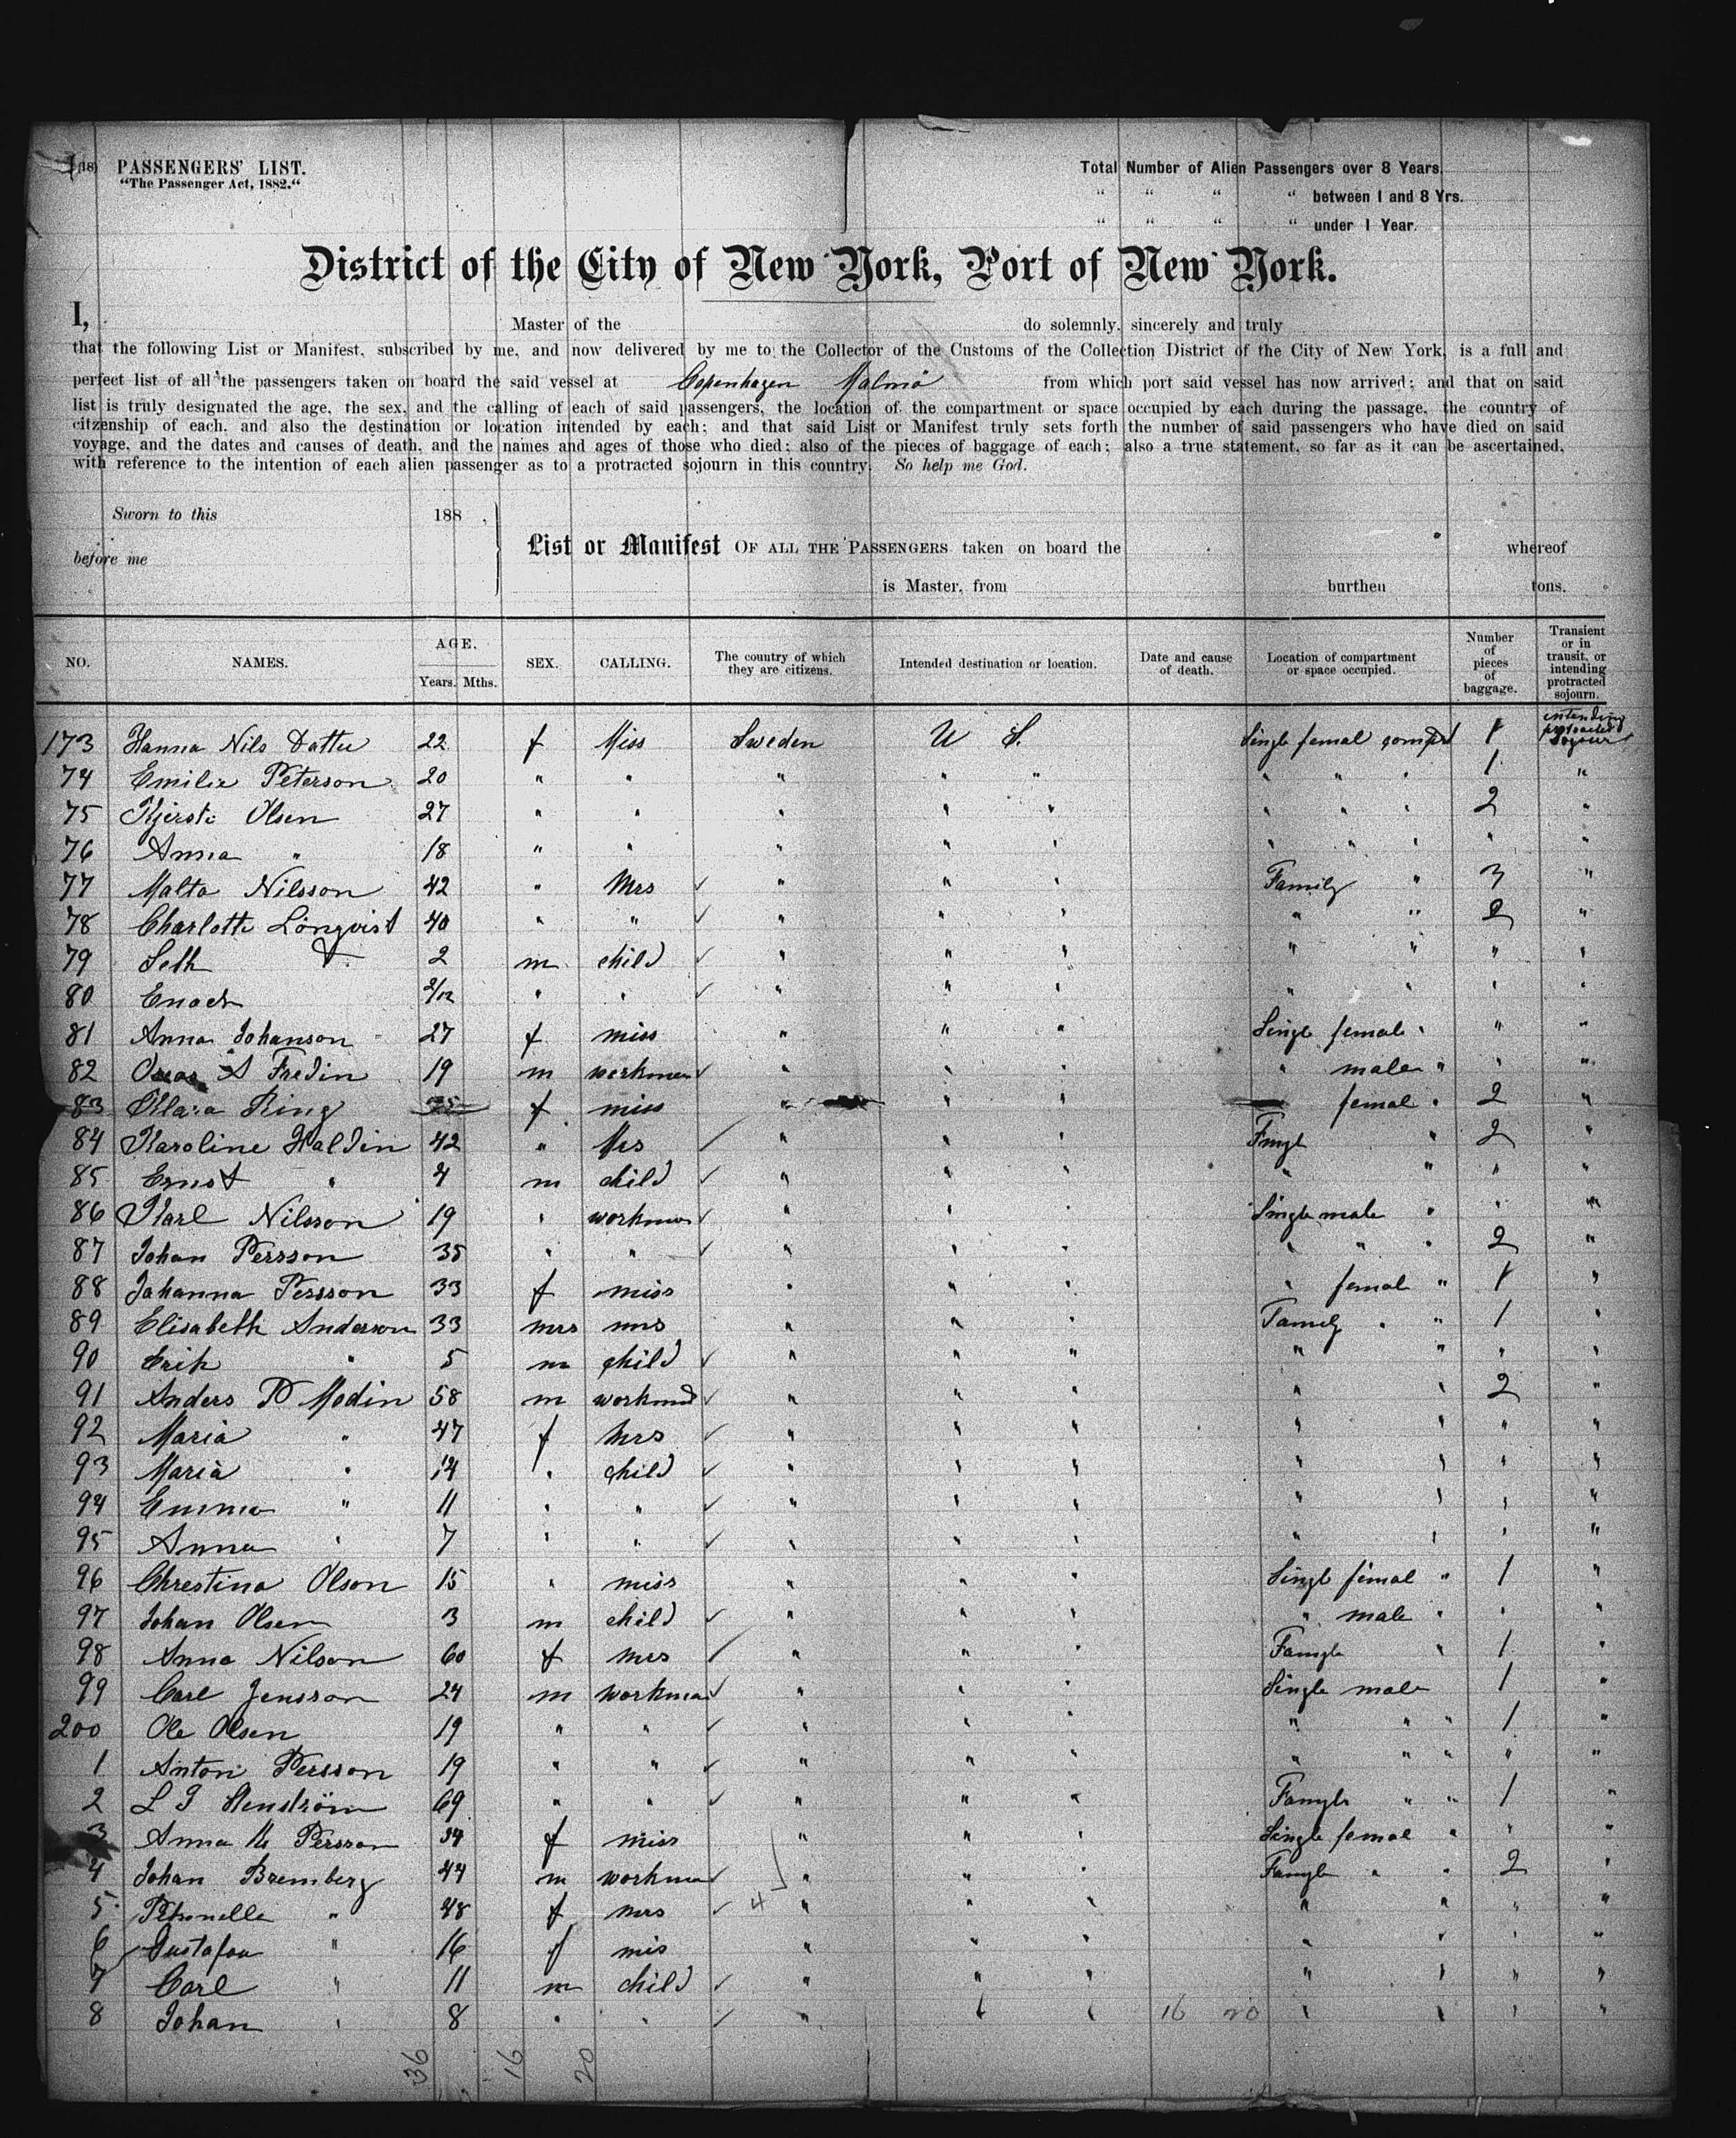 (18) PASSENGERS' LIST.
"The Passenger Act, 1882."
Total Number of Alien Passengers over 8 Years.
" " " " between 1 and 8 Yrs.
" " " " under 1 Year.
District of the City of New York, Port of New York.
I, Master of the do solemnly, sincerely and truly
that the following List or Manifest, subscribed by me, and now delivered by me to the Collector of the Customs of the Collection District of the City of New York, is a full and
perfect list of all the passengers taken on board the said vessel at Copenhagen Malmö from which port said vessel has now arrived; and that on said
list is truly designated the age, the sex, and the calling of each of said passengers, the location of the compartment or space occupied by each during the passage, the country of
citzenship of each, and also the destination or location intended by each; and that said List or Manifest truly sets forth the number of said passengers who have died on said
voyage, and the dates and causes of death, and the names and ages of those who died; also of the pieces of baggage of each; also a true statement, so far as it can be ascertained,
with reference to the intention of each alien passenger as to a protracted sojourn in this country. So help me God.
Sworn to this 188 ,
before me
List or Manifest OF ALL THE PASSENGERS taken on board the whereof
is Master, from burthen tons.
NO. NAMES. AGE. Years. Mths. SEX. CALLING. The country of which they are citizens. Intended destination or location. Date and cause of death. Location of compartment or space occupied. Number of pieces of baggage. Transient or in transit, or intending protracted sojourn.
173 Hanna Nils Datter 22 f Miss Sweden U S. Single femal compt 1 intending protracted sojour
74 Emilie Peterson 20 " " " " " " " " 1 "
75 Kjersti Olsen 27 " " " " " " " " 2 "
76 Anna " 18 " " " " " " " " " "
77 Malta Nilsson 42 " Mrs " " " Family " 3 "
78 Charlotte Lönqvist 40 " " " " " " " 2 "
79 Seth 2 m child " " " " " " "
80 Enoch 2/12 " " " " " " " " "
81 Anna Johanson 27 f miss " " " Singl female " " "
82 A Fredin 19 m workman " " " " male " " "
83 Klara Ring f miss " " " femal " 2 "
84 Karoline Haldin 42 " Mrs " " " " 2 "
85 Ernst " 4 m child " " " " " " "
86 Karl Nilsson 19 " workman " " " Single male " " "
87 Johan Persson 35 " " " " " " " " 2 "
88 Johanna Persson 33 f miss " " " " femal " 1 "
89 Elisabeth Anderson 33 mrs mrs " " " Family " " 1 "
90 Erik " 5 m child " " " " " " "
91 Anders P Modin 58 m workmd " " " " " 2 "
92 Maria " 47 f Mrs " " " " " " "
93 Maria " 14 " child " " " " " " "
94 Emma " 11 " " " " " " " " "
95 Anna " 7 " " " " " " " " "
96 Chrestina Olson 15 " miss " " " Singl fimal " 1 "
97 Johan Olsen 3 m child " " " " male " " "
98 Anna Nilson 60 f mrs " " " " 1 "
99 Carl Jensson 24 m workman " " " Single male 1 "
200 Ole Olsen 19 " " " " " " " " 1 "
1 Anton Persson 19 " " " " " " " " " "
2 L J Stenström 69 " " " " " " " 1 "
3 Anna M Persson 34 f miss " " " Single femal " " "
4 Johan Bremberg 44 m workman " " " " " 2 "
5 Petronelle " 48 f mrs 4 " " " " " " "
6 " 16 f mis " " " " " " "
7 Carl " 11 m child " " " " " " "
8 Johan " 8 " " " " " 16 20 " " " "
36 16 20